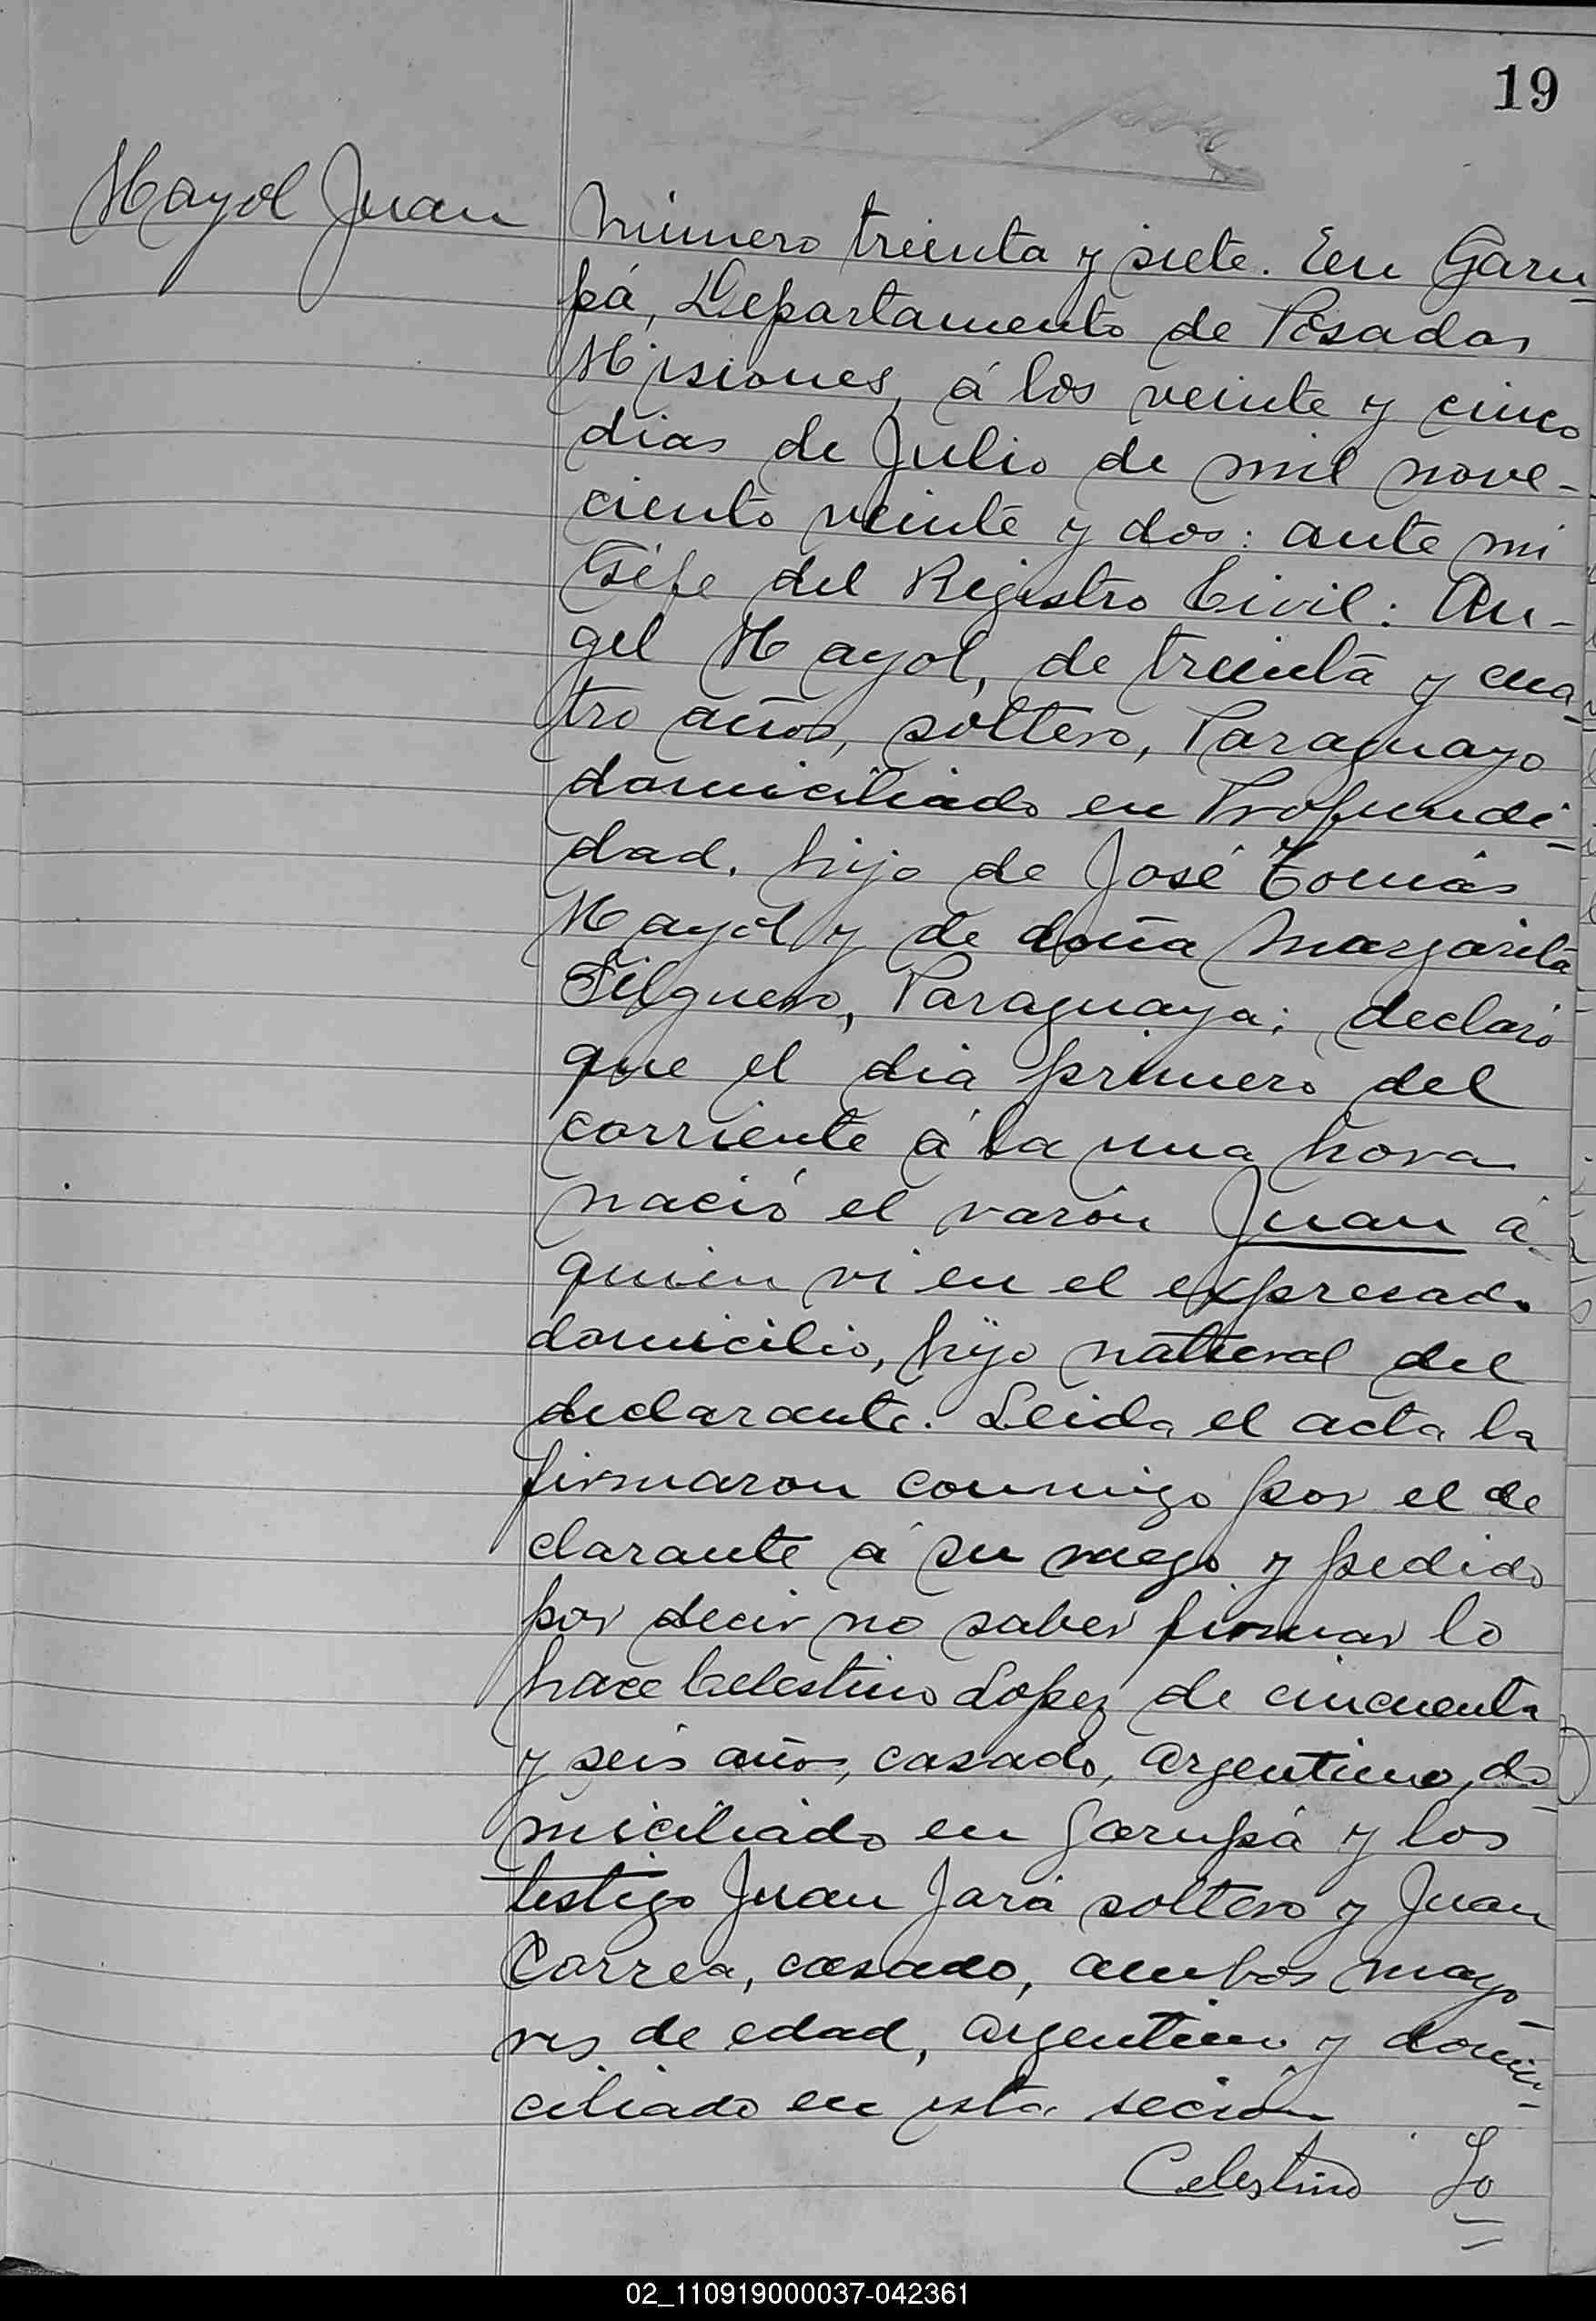 19
Mayol Juan
Número treinta y siete. En Garu-
pá, Departamento de Posadas
Misiones, á los veinte y cinco
dias de Julio de mil nove-
ciento veinte y dos: ante mi
Géfe del Registro Civil: An-
gel Mayol, de treinta y cua-
tro años, soltero, Paraguayo
domiciliado en Profundi-
dad. hijo de José Tomás
Mayol y de doña Margarita
Filguero, Paraguaya; declaró
que el dia primero del
corriente á la una hora
nació el varón Juan á
quien vi en el expresado
domicilio, hijo natural del
declarante. Leida el acta la
firmaron conmigo por el de
clarante á su ruego y pedido
por decir no saber firmar lo
hace Celestino Lopez de cincuenta
y seis años, casado, argentino, do-
miciliado en Garupá y los
testigo Juan Jará soltero y Juan
Correa, casado, ambos mayo-
res de edad, argentino y domi-
ciliado en esta seción
Celestino Lo
02_110919000037-042361